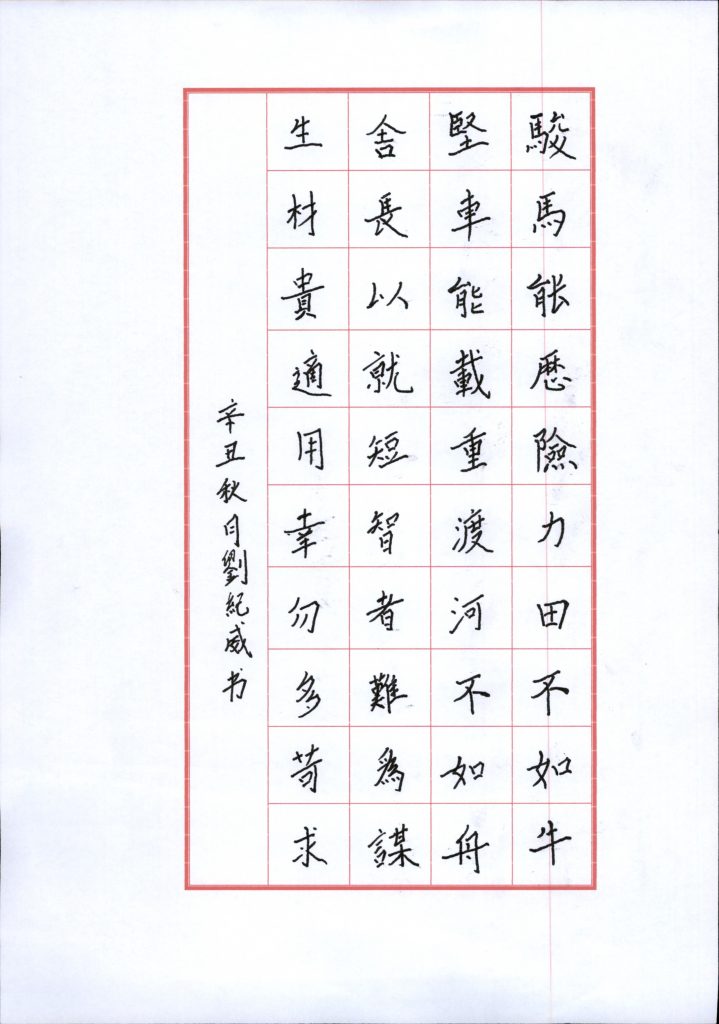 駿馬能歷險力田不如牛
堅車能載重渡河不如舟
舍長以就短智者難為謀
生材貴適用幸勿多苛求
辛丑秋月劉紀威书